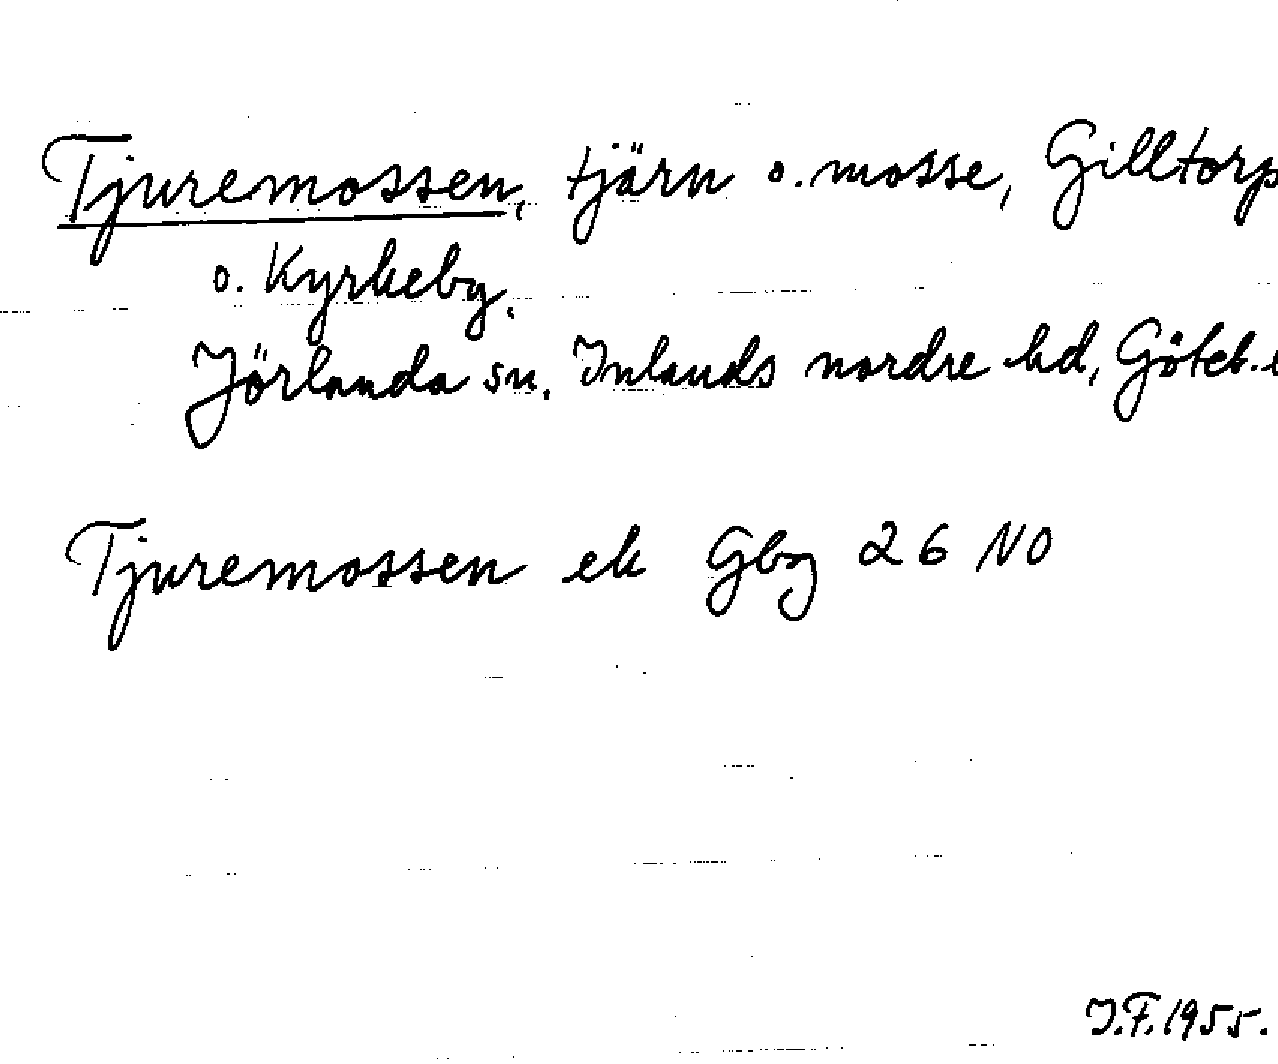 Tjuremossen, tjärn o. mosse, Gilltorp
o. Kyrkeby.
Jörlanda sn. Inlands nordre hd, Göteb.
Tjuremossen ek Gbg 26 NO
J.F. 1955.